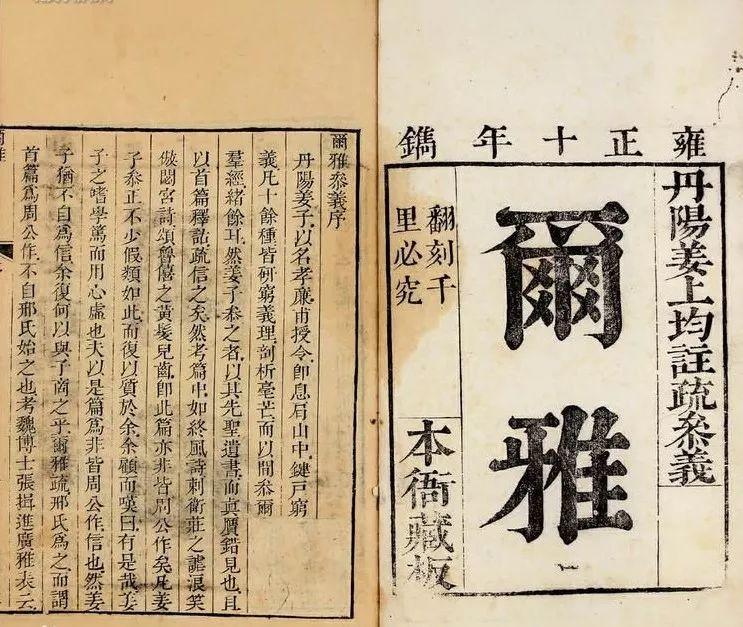 雍正十年鐫
丹陽姜上均註疏叅義
爾雅
翻刻千
里必究
本衙藏板
爾雅叅義序
丹陽姜子以名孝廉甫授令卽息肩山中鍵戸窮
義凡十餘種皆硏窮義理剖析毫芒而以間叅爾
羣經緒餘耳然姜子叅之者以其先聖遺書而眞贋錯見也且
以首篇釋詁疏信之矣然考篇中如終風詩刺衛莊之謔浪笑
傲閟宮詩頌魯僖之黃髮兒齒卽此篇亦非皆周公作矣凡姜
子叅正不少假類如此而復以質於余余顧而嘆曰有是哉姜
子之嗜學篤而用心虛也夫以是篇爲非皆周公作信也然姜
子猶不自爲信余復何以與子商之乎爾雅疏邢氏爲之而謂
首篇爲周公作不自邢氏始之也考魏博士張揖進廣雅表云